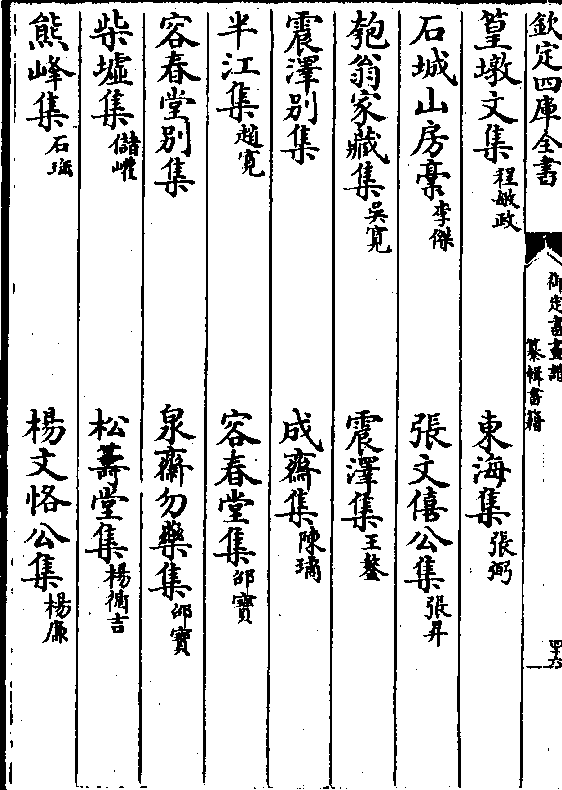 欽定四庫全書
御定書畫譜
纂輯書籍
四十六
篁墩文集 程敏政 東海集 張弼
石城山房稾 李傑 張文僖公集 張昇
匏翁家藏集 吳寛 震澤集 王鏊
震澤別集 成齋集 陳璚
半江集 趙寛 容春堂集 邵寶
容春堂別集 泉齋勿藥集 邵寶
柴墟集 儲巏 松籌堂集 楊循吉
熊峰集 石珤 楊文恪公集 楊廉